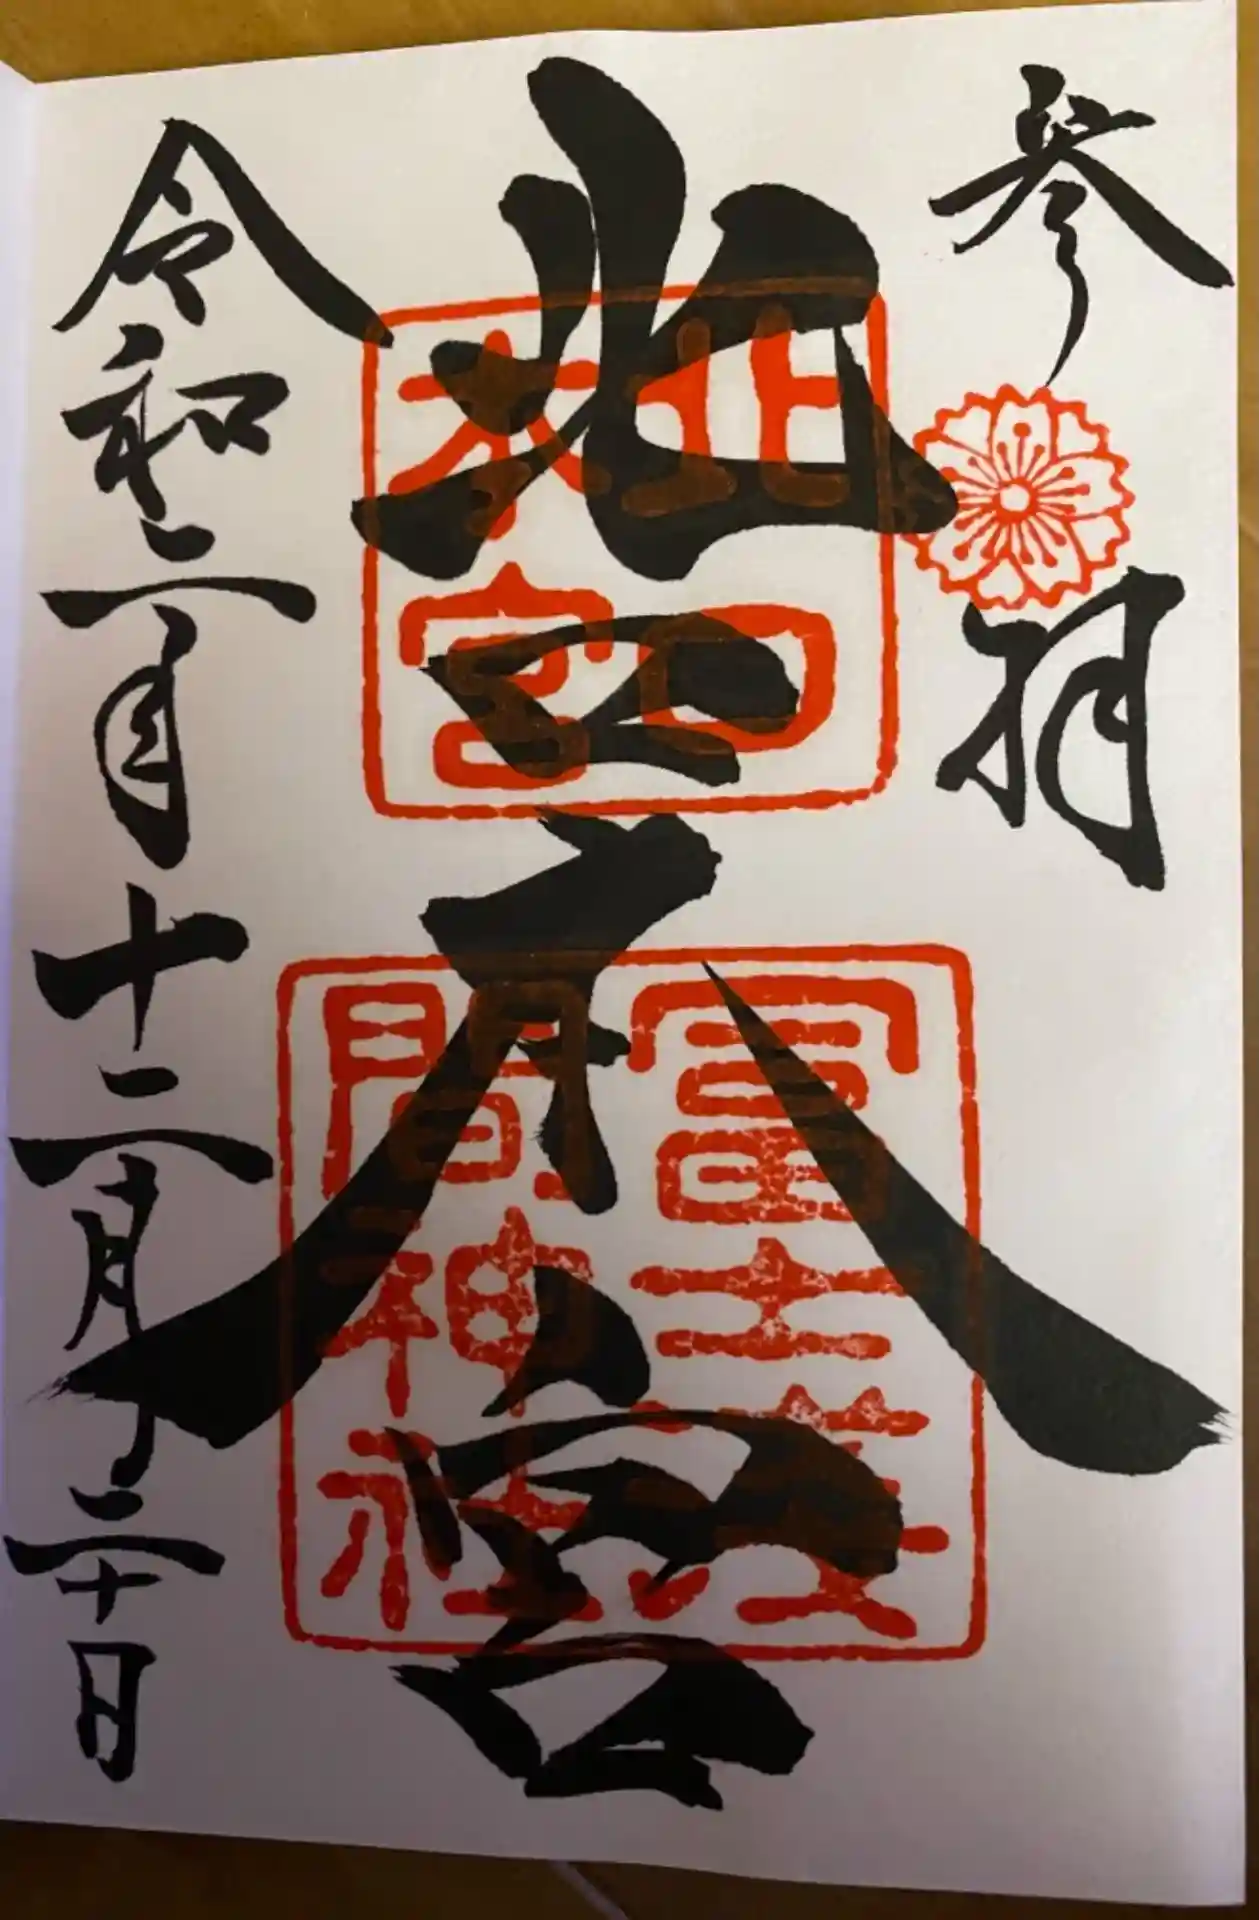 参拝
北口本宮
令和二年十二月二十日
北口
本宮
冨士淺
間神社